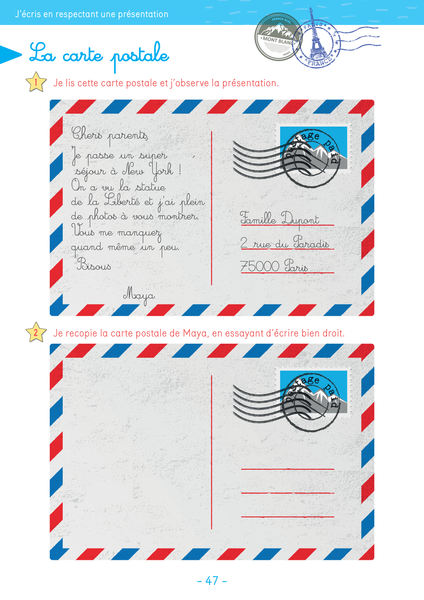 J'écris en respectant une présentation
MONT BLANC
PARIS
FRANCE
La carte postale
1 Je lis cette carte postale et j'observe la présentation.
Chers parents,
Je passe un super
séjour à New York !
On a vu la statue
de la Liberté et j'ai plein
de photos à vous montrer.
Vous me manquez
quand même un peu.
Bisous
Maya
Postage paid
Famille Dupont
2 rue du Paradis
75000 Paris
2 Je recopie la carte postale de Maya, en essayant d'écrire bien droit.
Postage paid
- 47 -